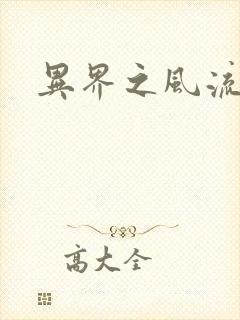 異界之風流
高大全